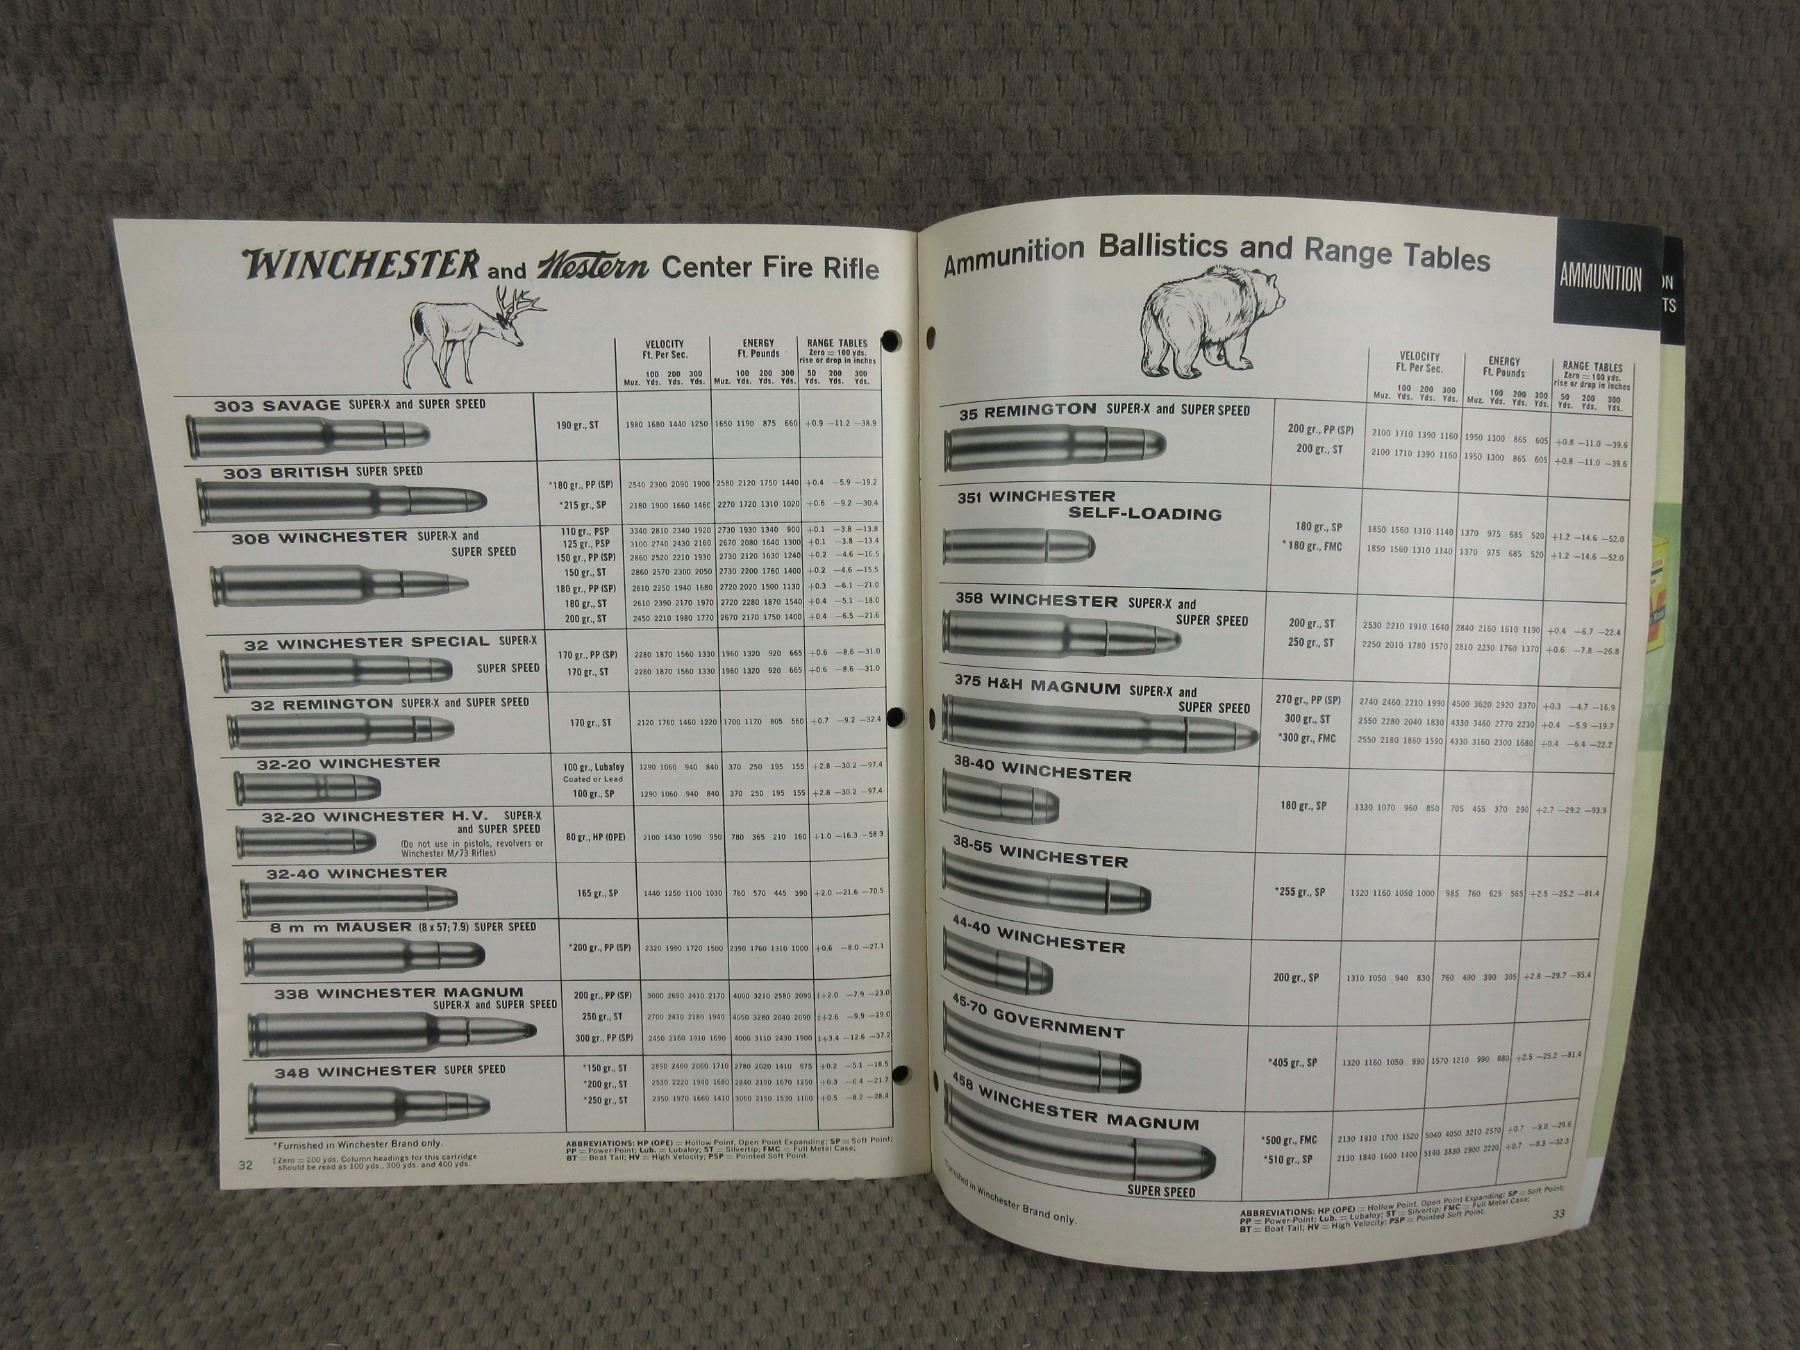 WINCHESTER and Western Center Fire Rifle
VELOCITY ENERGY RANGE TABLES
Ft. Per Sec. Ft. Pounds Zero = 100 yds.
rise or drop in inches
100 200 300 100 200 300 50 200 300
Muz. Yds. Yds. Yds. Muz. Yds. Yds. Yds. Yds. Yds. Yds.
303 SAVAGE SUPER-X and SUPER SPEED
190 gr., ST 1980 1680 1440 1250 1650 1190 875 660 +0.9 −11.2 −38.9
303 BRITISH SUPER SPEED
*180 gr., PP (SP) 2540 2300 2090 1900 2580 2120 1750 1440 +0.4 −5.9 −19.2
*215 gr., SP 2180 1900 1660 1460 2270 1720 1310 1020 +0.6 −9.2 −30.4
308 WINCHESTER SUPER-X and
SUPER SPEED
110 gr., PSP 3340 2810 2340 1920 2730 1930 1340 900 +0.1 −3.8 −13.8
125 gr., PSP 3100 2740 2430 2160 2670 2080 1640 1300 +0.1 −3.8 −13.4
150 gr., PP (SP) 2860 2520 2210 1930 2730 2120 1630 1240 +0.2 −4.6 −16.5
150 gr., ST 2860 2570 2300 2050 2730 2200 1760 1400 +0.2 −4.6 −15.5
180 gr., PP (SP) 2610 2250 1940 1680 2720 2020 1500 1130 +0.3 −6.1 −21.0
180 gr., ST 2610 2390 2170 1970 2720 2280 1870 1540 +0.4 −5.1 −18.0
200 gr., ST 2450 2210 1980 1770 2670 2170 1750 1400 +0.4 −6.5 −21.6
32 WINCHESTER SPECIAL SUPER-X
SUPER SPEED
170 gr., PP (SP) 2280 1870 1560 1330 1960 1320 920 665 +0.6 −8.6 −31.0
170 gr., ST 2280 1870 1560 1330 1960 1320 920 665 +0.6 −8.6 −31.0
32 REMINGTON SUPER-X and SUPER SPEED
170 gr., ST 2120 1760 1460 1220 1700 1170 805 560 +0.7 −9.2 −32.4
32-20 WINCHESTER
100 gr., Lubaloy 1290 1060 940 840 370 250 195 155 +2.8 −30.2 −97.4
Coated or Lead
100 gr., SP 1290 1060 940 840 370 250 195 155 +2.8 −30.2 −97.4
32-20 WINCHESTER H.V. SUPER-X
and SUPER SPEED
(Do not use in pistols, revolvers or
Winchester M/73 Rifles)
80 gr., HP (OPE) 2100 1430 1090 950 780 365 210 160 +1.0 −16.3 −58.3
32-40 WINCHESTER
165 gr., SP 1440 1250 1100 1030 760 570 445 390 +2.0 −21.6 −70.5
8 m m MAUSER (8 x 57; 7.9) SUPER SPEED
*200 gr., PP (SP) 2320 1990 1720 1500 2390 1760 1310 1000 +0.6 −8.0 −27.1
338 WINCHESTER MAGNUM
SUPER-X and SUPER SPEED
200 gr., PP (SP) 3000 2690 2410 2170 4000 3210 2580 2090 ‡+2.0 −7.9 −23.0
250 gr., ST 2700 2430 2180 1940 4050 3280 2640 2090 ‡+2.6 −9.9 −29.0
300 gr., PP (SP) 2450 2160 1910 1690 4000 3110 2430 1900 ‡+3.4 −12.6 −37.2
348 WINCHESTER SUPER SPEED
*150 gr., ST 2890 2460 2060 1710 2780 2020 1410 975 +0.2 −5.1 −18.5
*200 gr., ST 2530 2220 1940 1680 2840 2190 1670 1250 +0.3 −6.4 −21.7
*250 gr., ST 2350 1970 1660 1410 3060 2150 1530 1100 +0.5 −8.2 −28.4
*Furnished in Winchester Brand only.
‡Zero = 200 yds. Column headings for this cartridge
should be read as 100 yds., 300 yds. and 400 yds.
ABBREVIATIONS: HP (OPE) = Hollow Point, Open Point Expanding; SP = Soft Point;
PP = Power-Point; Lub. = Lubaloy; ST = Silvertip; FMC = Full Metal Case;
BT = Boat Tail; HV = High Velocity; PSP = Pointed Soft Point.
32
Ammunition Ballistics and Range Tables
AMMUNITION
VELOCITY ENERGY RANGE TABLES
Ft. Per Sec. Ft. Pounds Zero = 100 yds.
rise or drop in inches
100 200 300 100 200 300 50 200 300
Muz. Yds. Yds. Yds. Muz. Yds. Yds. Yds. Yds. Yds. Yds.
35 REMINGTON SUPER-X and SUPER SPEED
200 gr., PP (SP) 2100 1710 1390 1160 1950 1300 865 605 +0.8 −11.0 −39.6
200 gr., ST 2100 1710 1390 1160 1950 1300 865 605 +0.8 −11.0 −39.6
351 WINCHESTER
SELF-LOADING
180 gr., SP 1850 1560 1310 1140 1370 975 685 520 +1.2 −14.6 −52.0
*180 gr., FMC 1850 1560 1310 1140 1370 975 685 520 +1.2 −14.6 −52.0
358 WINCHESTER SUPER-X and
SUPER SPEED
200 gr., ST 2530 2210 1910 1640 2840 2160 1610 1190 +0.4 −6.7 −22.4
250 gr., ST 2250 2010 1780 1570 2810 2230 1760 1370 +0.6 −7.8 −26.8
375 H&H MAGNUM SUPER-X and
SUPER SPEED
270 gr., PP (SP) 2740 2460 2210 1990 4500 3620 2920 2370 +0.3 −4.7 −16.9
300 gr., ST 2550 2280 2040 1830 4330 3460 2770 2230 +0.4 −5.9 −19.7
*300 gr., FMC 2550 2180 1860 1590 4330 3160 2300 1680 +0.4 −6.4 −22.2
38-40 WINCHESTER
180 gr., SP 1330 1070 960 850 705 455 370 290 +2.7 −29.2 −93.9
38-55 WINCHESTER
*255 gr., SP 1320 1160 1050 1000 985 760 625 565 +2.5 −25.2 −81.4
44-40 WINCHESTER
200 gr., SP 1310 1050 940 830 760 490 390 305 +2.8 −29.7 −95.4
45-70 GOVERNMENT
*405 gr., SP 1320 1160 1050 990 1570 1210 990 880 +2.5 −25.2 −81.4
458 WINCHESTER MAGNUM
SUPER SPEED
*500 gr., FMC 2130 1910 1700 1520 5040 4050 3210 2570 +0.7 −9.0 −29.6
*510 gr., SP 2130 1840 1600 1400 5140 3830 2900 2220 +0.7 −9.3 −32.3
Furnished in Winchester Brand only.
ABBREVIATIONS: HP (OPE) = Hollow Point, Open Point Expanding; SP = Soft Point;
PP = Power-Point; Lub. = Lubaloy; ST = Silvertip; FMC = Full Metal Case;
BT = Boat Tail; HV = High Velocity; PSP = Pointed Soft Point.
33